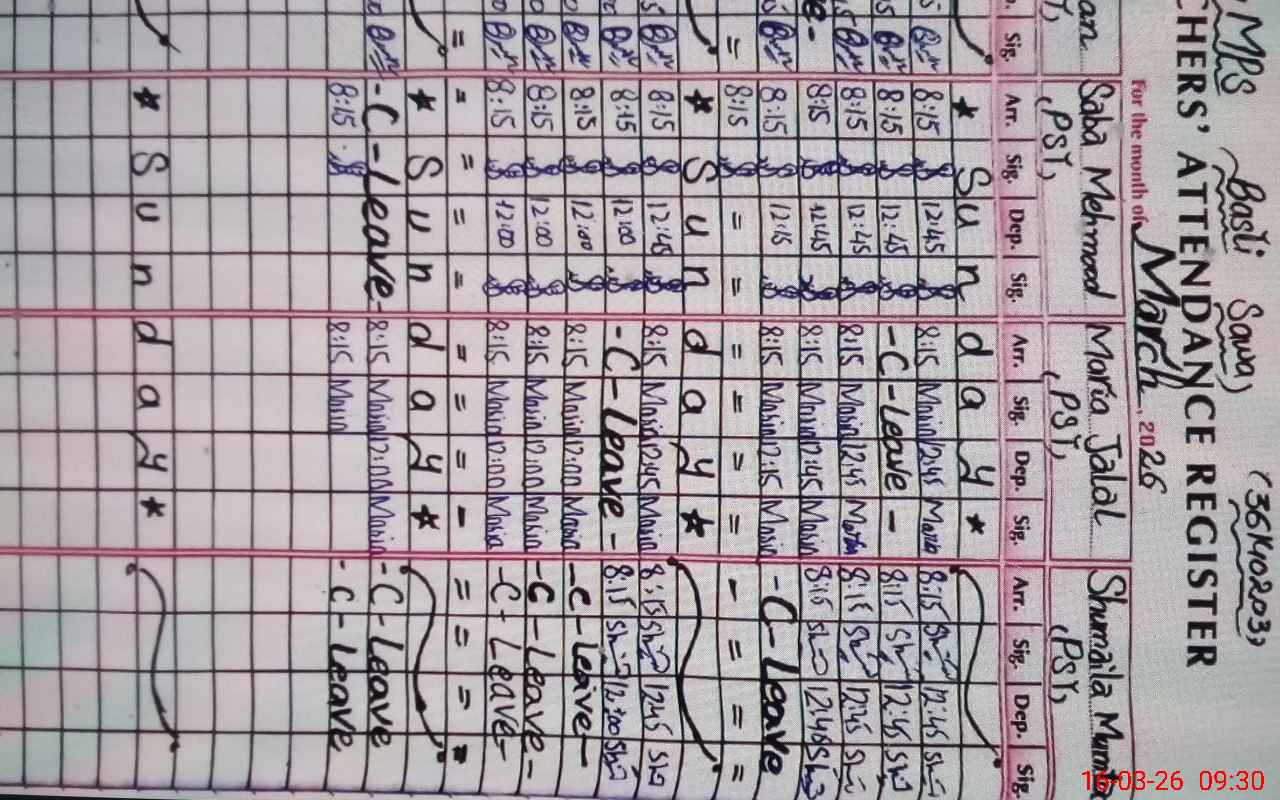 MPS Basti Sawa) (36140203)
CHERS' ATTENDANCE REGISTER
For the month of March, 2026
an Saba Mehmood Maria Jalal Shumaila Mumtaz
(PST) (PST) (PST)
Sig. Arr. Sig. Dep. Sig. Arr. Sig. Dep. Sig. Arr. Sig. Dep. Sig.
* Sunday *
8:15 12:45 8:15 Maria 12:45 Maria 8:15 12:45
8:15 12:45 - C - Leave - 8:15 12:45
8:15 12:45 8:15 Maria 12:45 Maria 8:15 12:45
8:15 12:45 8:15 Maria 12:45 Maria 8:15 12:45
8:15 12:15 8:15 Maria 12:15 Maria - C - Leave
= 8:15 = = = = = = - = = =
* Sunday *
8:15 12:45 8:15 Maria 12:45 Maria 8:15 12:45
8:15 12:00 - C - Leave - 8:15 12:00
8:15 12:00 8:15 Maria 12:00 Maria - C - Leave -
8:15 12:00 8:15 Maria 12:00 Maria - C - Leave -
8:15 12:00 8:15 Maria 12:00 Maria - C - Leave -
= = = = = = = = - = = = =
* Sunday *
- C - Leave - 8:15 Maria 12:00 Maria - C - Leave
8:15 8:15 Maria - C - Leave
* Sunday *
16-03-26 09:30